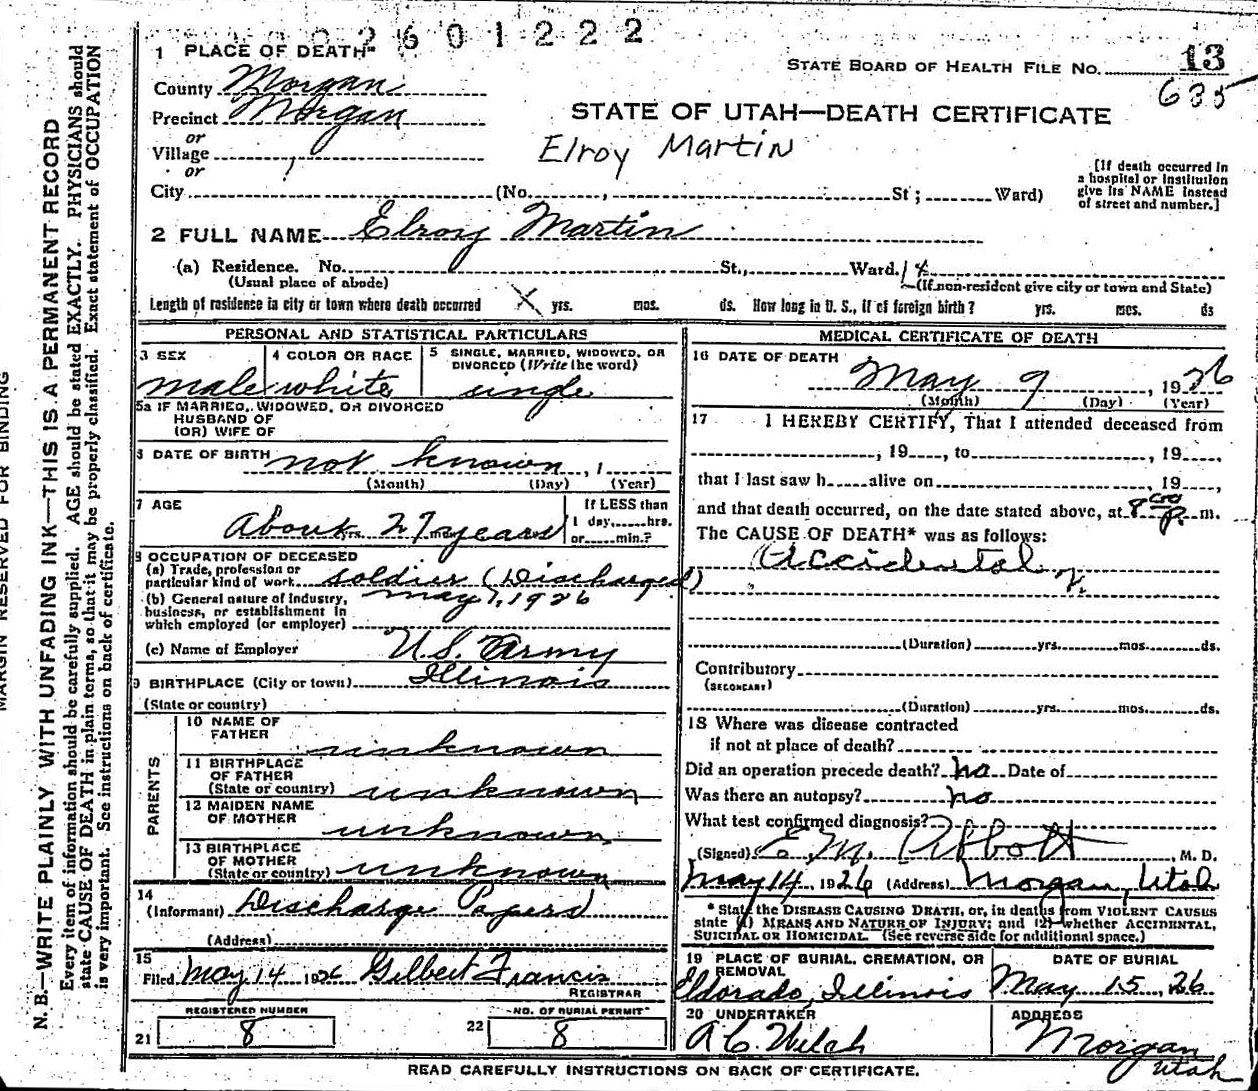 2601222
1 PLACE OF DEATH
STATE BOARD OF HEALTH FILE NO. 13
635
County Morgan
Precinct Morgan
STATE OF UTAH—DEATH CERTIFICATE
or
Village
Elroy Martin
or
City (No. , St; Ward)
[If death occurred in
a hospital or institution
give its NAME instead
of street and number.]
2 FULL NAME Elroy Martin
(a) Residence. No. St., Ward.
(Usual place of abode)
(If non-resident give city or town and State)
Length of residence in city or town where death occurred X yrs. mos. ds. How long in U. S., if of foreign birth? yrs. mos. ds
PERSONAL AND STATISTICAL PARTICULARS
3 SEX
male
4 COLOR OR RACE
white
5 SINGLE, MARRIED, WIDOWED, OR
DIVORCED (Write the word)
single
5a IF MARRIED, WIDOWED, OR DIVORCED
HUSBAND OF
(OR) WIFE OF
6 DATE OF BIRTH not known , 1
(Month) (Day) (Year)
7 AGE
About 27 years
If LESS than
1 day, hrs.
or min.?
8 OCCUPATION OF DECEASED
(a) Trade, profession or
particular kind of work soldier (Discharged)
(b) General nature of industry,
business, or establishment in
which employed (or employer)
May 7, 1926
(c) Name of Employer U.S. Army
9 BIRTHPLACE (City or town) Illinois
(State or country)
PARENTS
10 NAME OF
FATHER unknown
11 BIRTHPLACE
OF FATHER
(State or country) unknown
12 MAIDEN NAME
OF MOTHER unknown
13 BIRTHPLACE
OF MOTHER
(State or country) unknown
14
(Informant) Discharge Papers
(Address)
15
Filed May 14 1926 Gilbert Francis
REGISTRAR
REGISTERED NUMBER
21 8
NO. OF BURIAL PERMIT
22 8
MEDICAL CERTIFICATE OF DEATH
16 DATE OF DEATH
May 9 , 1926
(Month) (Day) (Year)
17 I HEREBY CERTIFY, That I attended deceased from
, 19 , to , 19 ,
that I last saw h alive on , 19 ,
and that death occurred, on the date stated above, at 8 00 P. m.
The CAUSE OF DEATH* was as follows:
Accidental
(Duration) yrs. mos. ds.
Contributory
(SECONDARY)
(Duration) yrs. mos. ds.
18 Where was disease contracted
if not at place of death?
Did an operation precede death? no Date of
Was there an autopsy? no
What test confirmed diagnosis?
(Signed) E. M. Abbott , M. D.
May 14 1926 (Address) Morgan, Utah
* State the DISEASE CAUSING DEATH, or, in deaths from VIOLENT CAUSES
state (1) MEANS AND NATURE OF INJURY; and (2) whether ACCIDENTAL,
SUICIDAL OR HOMICIDAL. (See reverse side for additional space.)
19 PLACE OF BURIAL, CREMATION, OR
REMOVAL
Eldorado, Illinois
DATE OF BURIAL
May 15, 26
20 UNDERTAKER
A C Welch
ADDRESS
Morgan
Utah
READ CAREFULLY INSTRUCTIONS ON BACK OF CERTIFICATE.
MARGIN RESERVED FOR BINDING
N. B.—WRITE PLAINLY, WITH UNFADING INK—THIS IS A PERMANENT RECORD
Every item of information should be carefully supplied. AGE should be stated EXACTLY. PHYSICIANS should
state CAUSE OF DEATH in plain terms, so that it may be properly classified. Exact statement of OCCUPATION
is very important. See instructions on back of certificate.